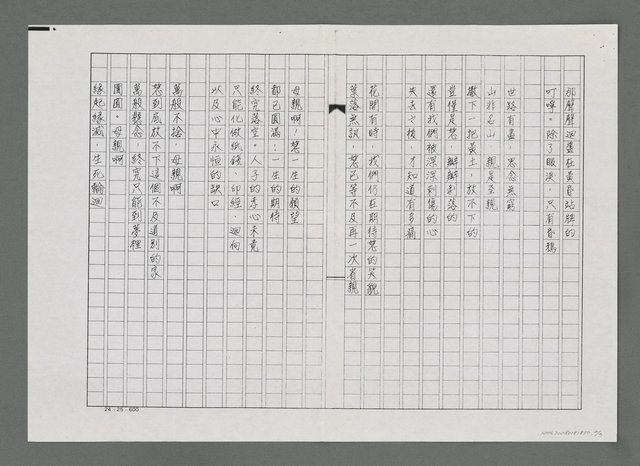 那聲聲迴盪在黃昏站牌的
叮嚀。除了眼淚，只有昏鴉
世路有盡，思念無窮
山非名山，親是至親
撒下一把黃土，放不下的
豈僅是慧，瓣瓣剝落的
還有我們被深深刺傷的心
失去之後，才知道有多痛
花開有時，我們仍在期待慧的笑貌
葉落無訊，慧已等不及再一次省親
母親啊！慧一生的願望
都已圓滿；一生的期待
終究落空。人子的孝心未竟
只能化做紙錢、印經、迴向
以及心中永恆的缺口
萬般不捨，母親啊
慧到底放不下這個不及道別的家
萬般懸念，終究只能到夢裡
團圓。母親啊
緣起緣滅，生死輪迴
24×25=600